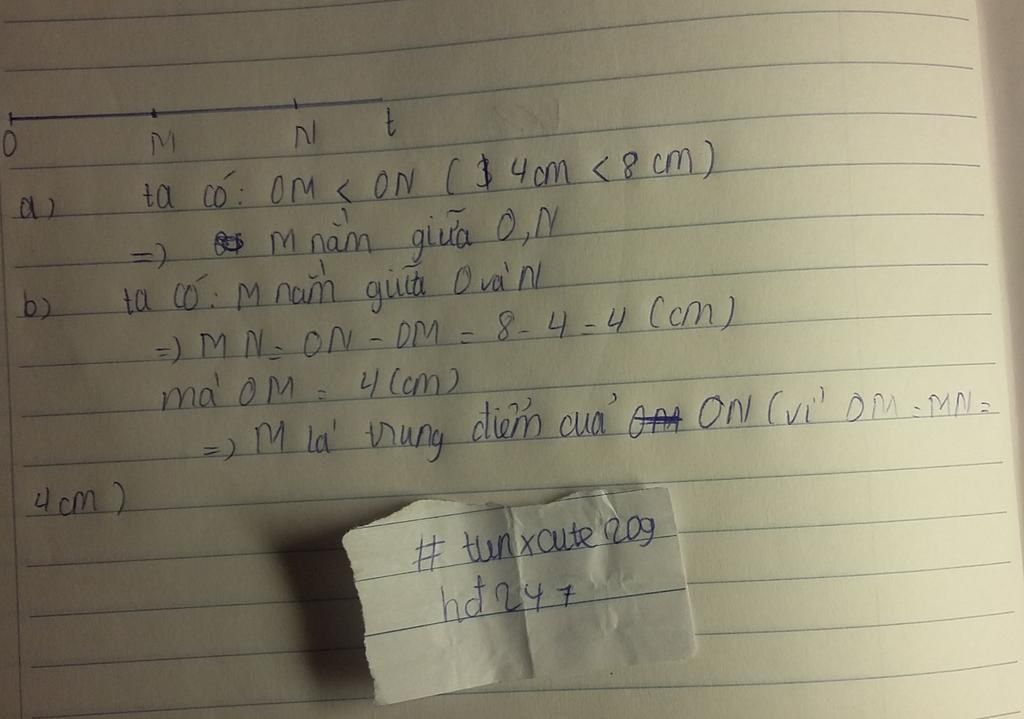 O M N t
a) ta có: OM < ON ( 4cm < 8 cm)
=) M nằm giữa O,N
b) ta có: M nằm giữa O và N
=) MN = ON - OM = 8 - 4 = 4 (cm)
mà OM = 4 (cm)
=) M là trung điểm của ON (vì OM = MN =
4cm)
# tunxcute209
hđ247